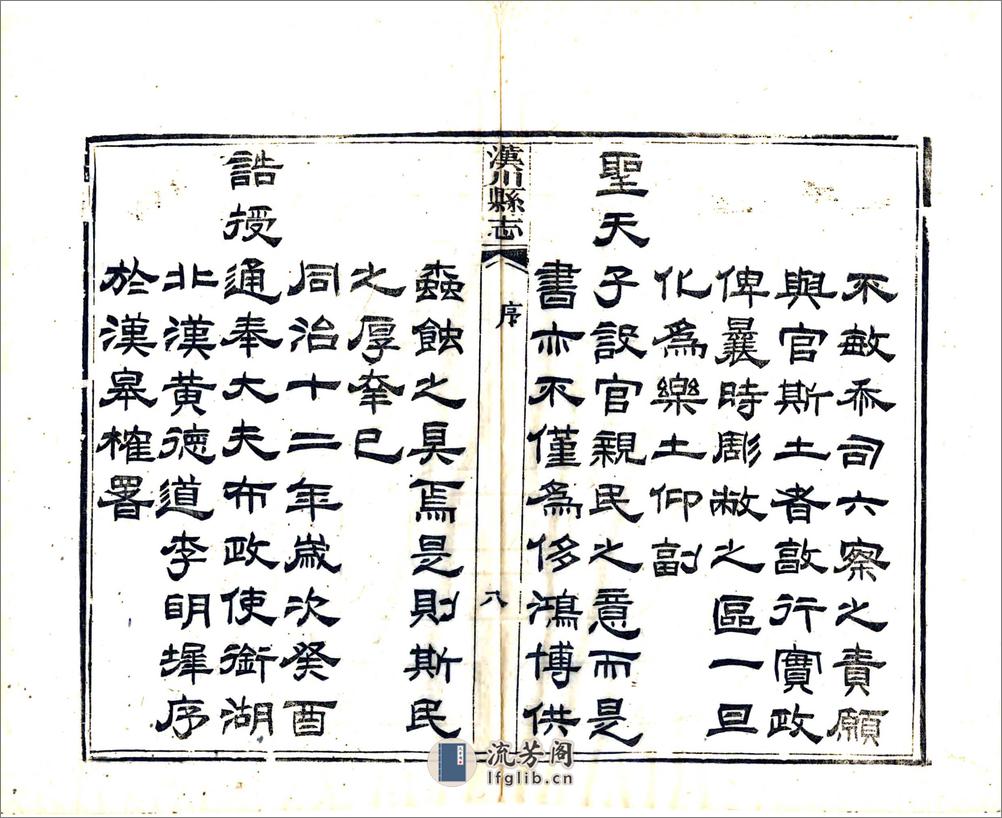 不敏忝司六察之責願
與官斯土者敦行實政
俾曩時彫敝之區一旦
化為樂土仰副
聖天子設官親民之意而是
書亦不僅為侈鴻博供
漢川縣志
序
八
蟲蝕之具焉是則斯民
之厚幸已
同治十二年歲次癸酉
誥授通奉大夫布政使銜湖
北漢黃德道李明墀序
於漢皋榷署
流芳阁
lfglib.cn